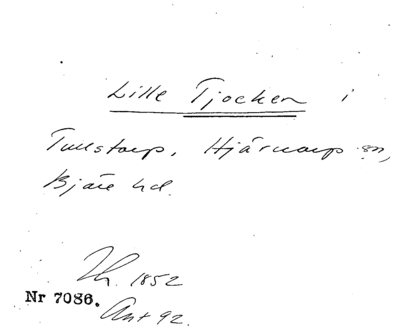 Lille Tjocken i
Tullstorp, Hjärnarp sn,
Bjäre hd.
Th. 1852
Nr 7086.
Ant 92.